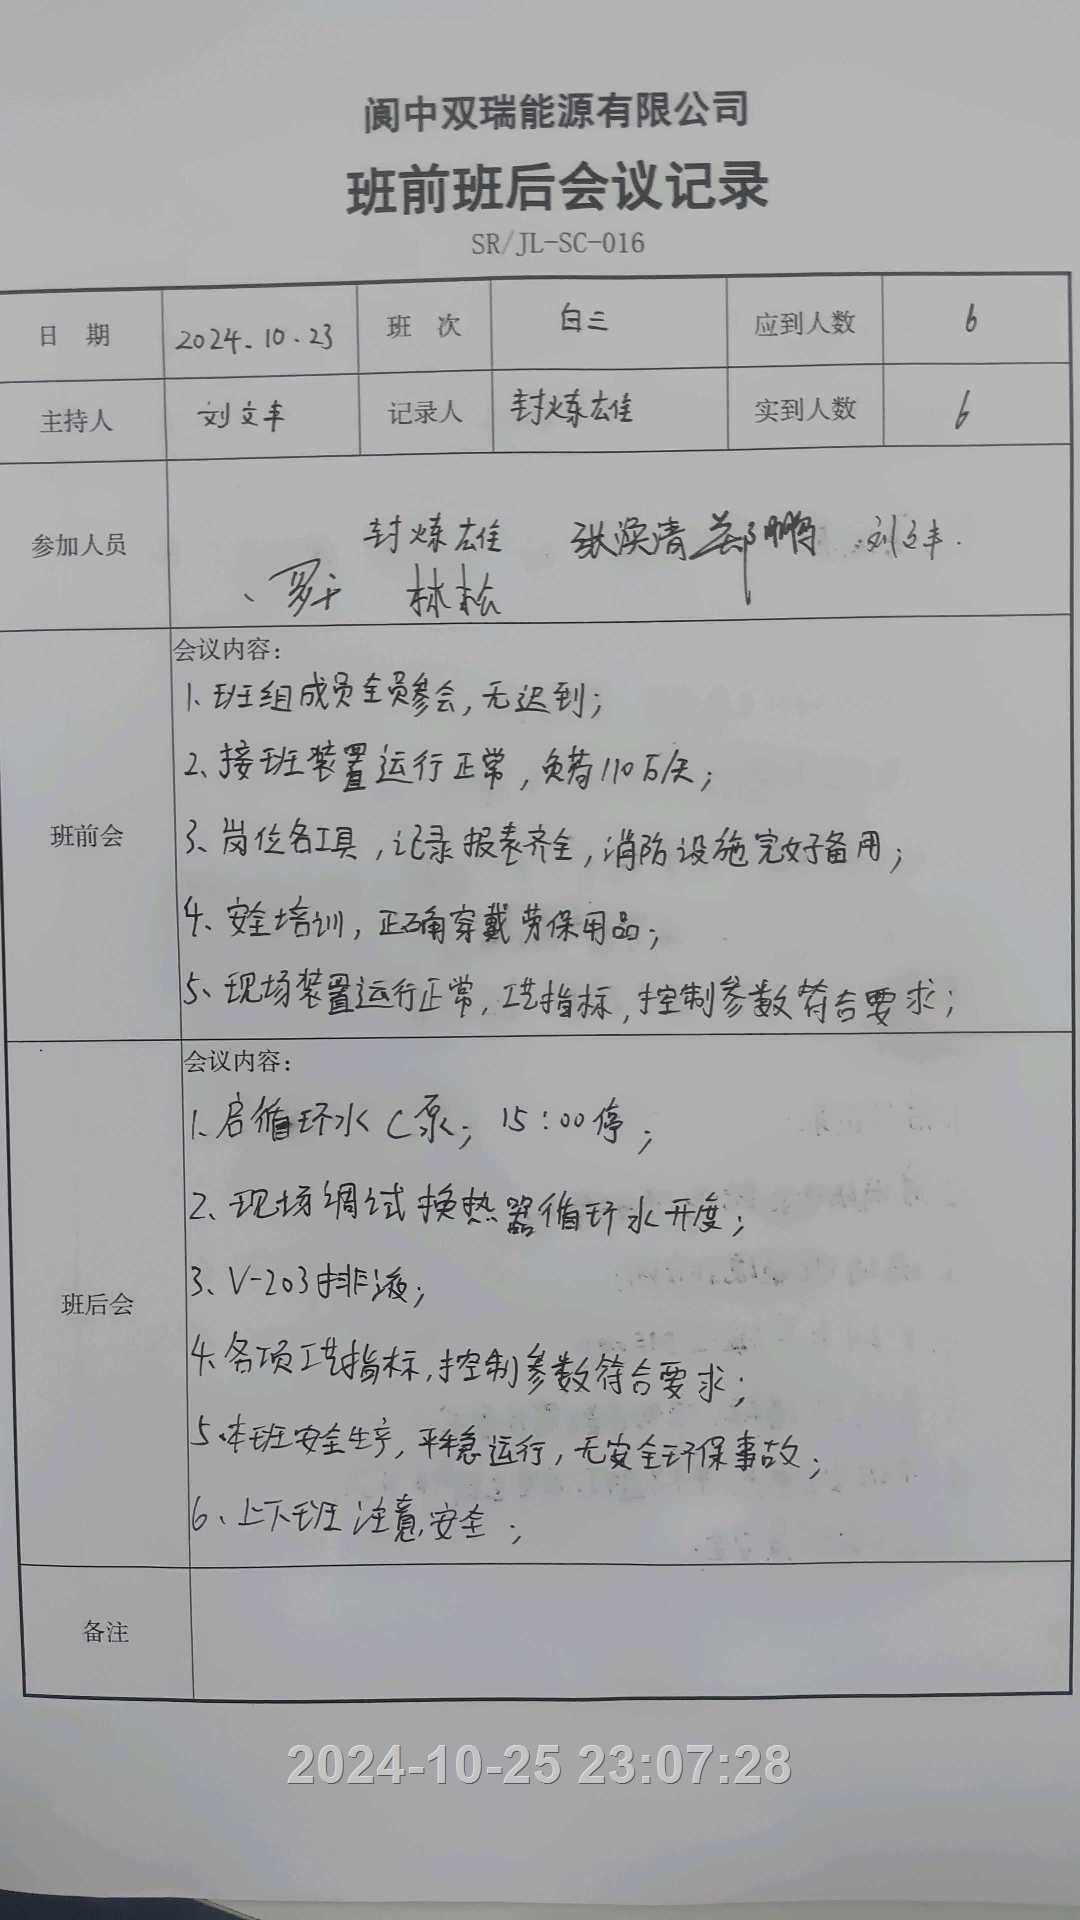 阆中双瑞能源有限公司
班前班后会议记录
SR/JL-SC-016
日 期 2024.10.23 班 次 白三 应到人数 6
主持人 刘文丰 记录人 封炼雄 实到人数 6
参加人员 封炼雄 张涣清 郑鹏 刘文丰.
林松
会议内容:
1、班组成员全员参会,无迟到;
2、接班装置运行正常,负荷110万/天;
班前会
3、岗位各工具,记录报表齐全,消防设施完好备用;
4、安全培训,正确穿戴劳保用品;
5、现场装置运行正常,工艺指标,控制参数符合要求;
会议内容:
1、启循环水C泵;15:00停;
2、现场调试换热器循环水开度;
3、V-203排液;
班后会
4、各项工艺指标,控制参数符合要求;
5、本班安全生产,平稳运行,无安全环保事故;
6、上下班注意安全;
备注
2024-10-25 23:07:28